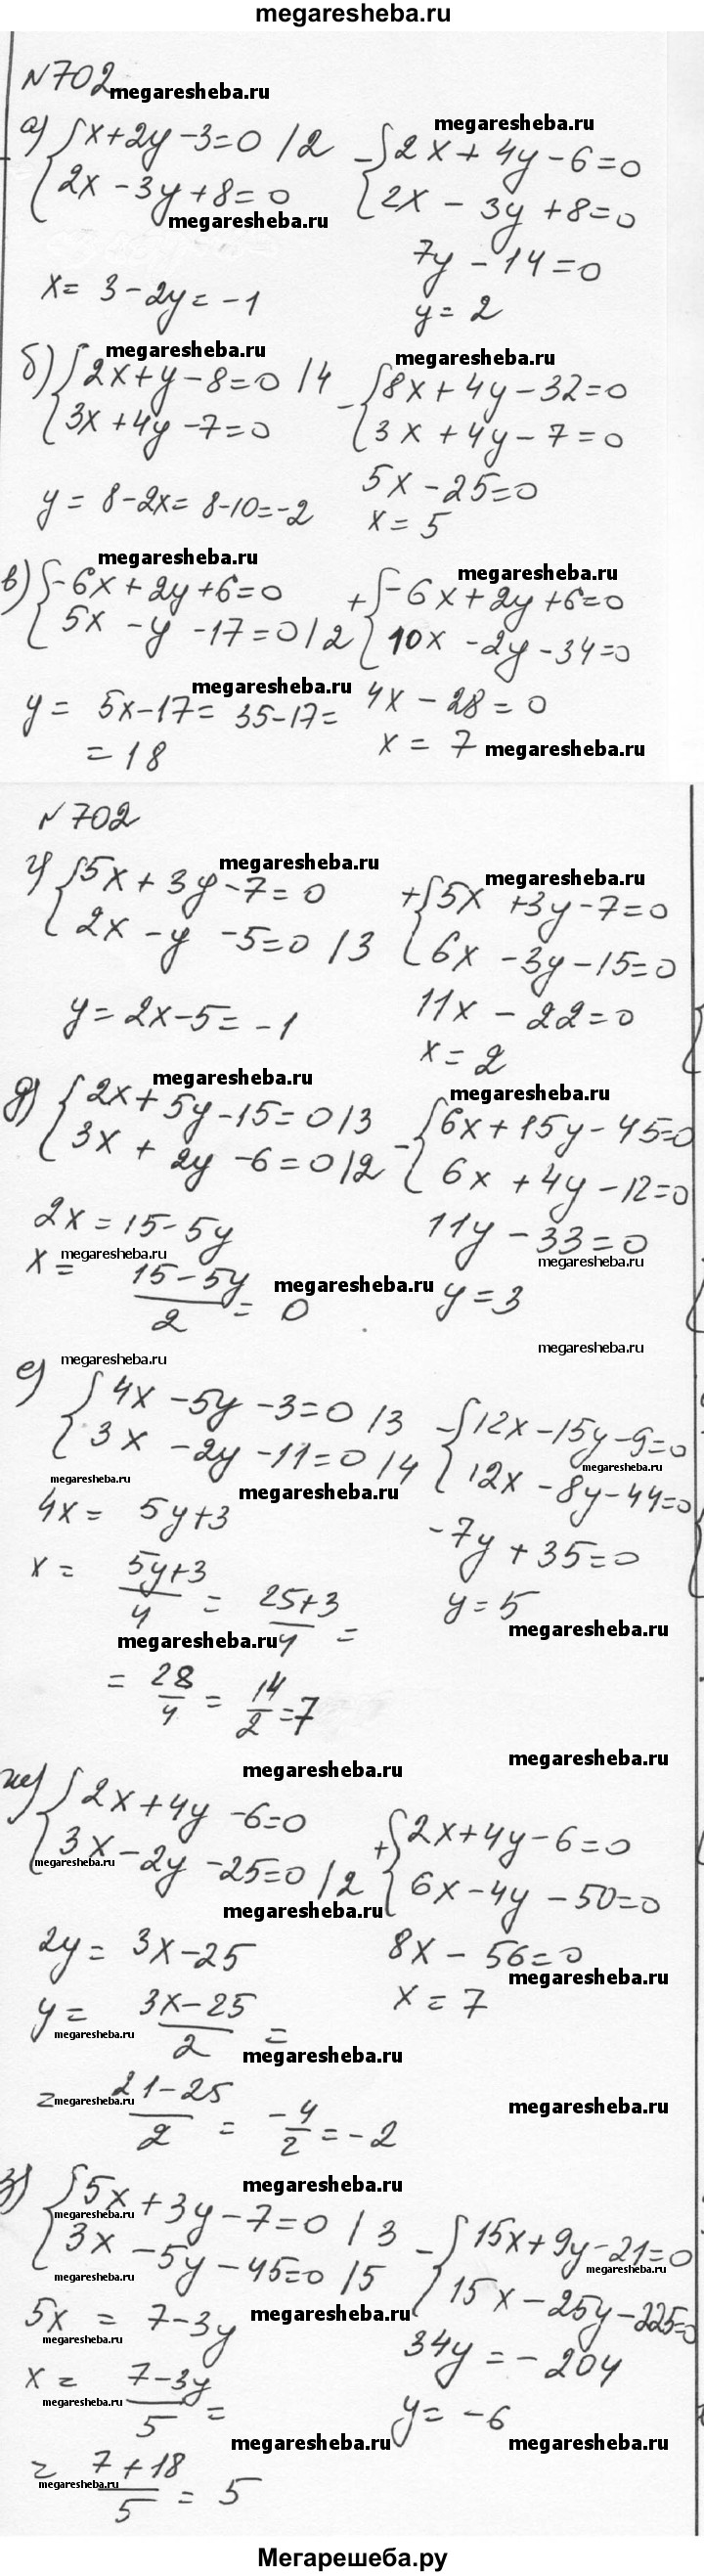 megaresheba.ru
№702
megaresheba.ru
а) { x+2y-3=0 /2
2x-3y+8=0
megaresheba.ru
megaresheba.ru
- { 2x+4y-6=0
2x-3y+8=0
7y-14=0
y=2
x=3-2y=-1
megaresheba.ru
б) { 2x+y-8=0 /4
3x+4y-7=0
megaresheba.ru
- { 8x+4y-32=0
3x+4y-7=0
5x-25=0
x=5
y=8-2x=8-10=-2
megaresheba.ru
в) { -6x+2y+6=0
5x-y-17=0 /2
megaresheba.ru
+ { -6x+2y+6=0
10x-2y-34=0
megaresheba.ru
4x-28=0
x=7
megaresheba.ru
y=5x-17=35-17=
=18
№702
megaresheba.ru
г) { 5x+3y-7=0
2x-y-5=0 /3
megaresheba.ru
+ { 5x+3y-7=0
6x-3y-15=0
11x-22=0
x=2
y=2x-5=-1
megaresheba.ru
д) { 2x+5y-15=0 /3
3x+2y-6=0 /2
megaresheba.ru
- { 6x+15y-45=0
6x+4y-12=0
11y-33=0
megaresheba.ru
y=3
2x=15-5y
megaresheba.ru
x= 15-5y
2
=0
megaresheba.ru
megaresheba.ru
megaresheba.ru
е) { 4x-5y-3=0 /3
3x-2y-11=0 /4
megaresheba.ru
megaresheba.ru
- { 12x-15y-9=0
megaresheba.ru
12x-8y-44=0
-7y+35=0
y=5
megaresheba.ru
4x=5y+3
x= 5y+3
4
= 25+3
4
=
megaresheba.ru
= 28
4
= 14
2
=7
megaresheba.ru
megaresheba.ru
ж) { 2x+4y-6=0
3x-2y-25=0 /2
megaresheba.ru
megaresheba.ru
+ { 2x+4y-6=0
6x-4y-50=0
8x-56=0
megaresheba.ru
x=7
2y=3x-25
y= 3x-25
2
=
megaresheba.ru
megaresheba.ru
= 21-25
2
= -4
2
=-2
megaresheba.ru
megaresheba.ru
megaresheba.ru
з) { 5x+3y-7=0 /3
megaresheba.ru
3x-5y-45=0 /5
megaresheba.ru
- { 15x+9y-21=0
megaresheba.ru
15x-25y-225=0
34y=-204
y=-6
megaresheba.ru
5x=7-3y
megaresheba.ru
x= 7-3y
5
=
megaresheba.ru
megaresheba.ru
megaresheba.ru
= 7+18
5
=5
megaresheba.ru
Мегарешеба.ру